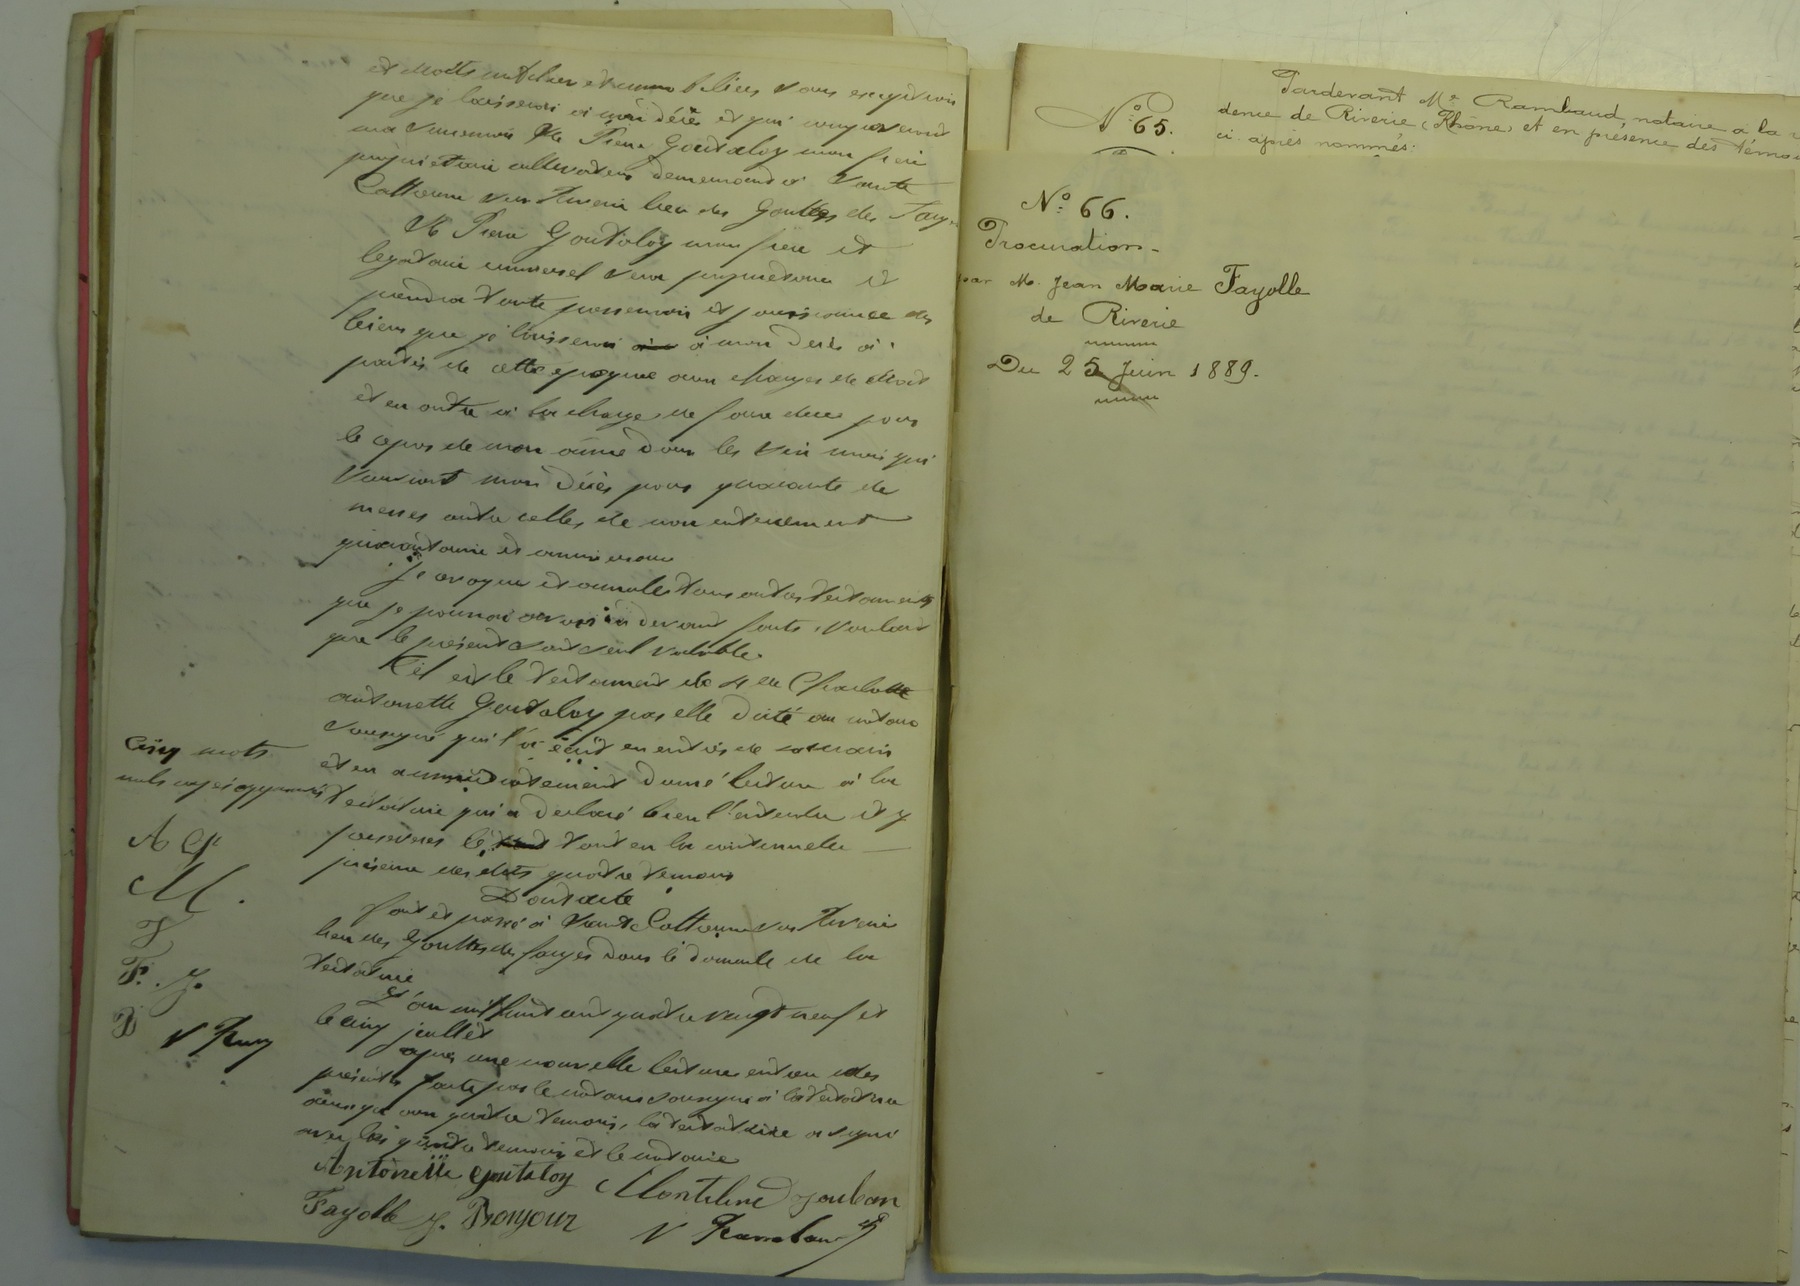 et droits mobiliers et immobiliers sans exception
que je laisserai à mon décès et qui composeront
ma succession M. Pierre Goutaloy mon frère
propriétaire cultivateur demeurant à Sainte
Catherine sur Riverie lieu des Gouttes des Farges
M. Pierre Goutaloy mon frère et
légataire universel sera propriétaire et
prendra toute possession et jouissance des
biens que je laisserai à mon décès à
partir de cette époque aux charges de droit
et en outre à la charge de faire dire pour
le repos de mon âme dans les six mois qui
suivront mon décès pour quarante de
messes outre celles de mon enterrement
quarantaine et anniversaire
Je révoque et annule tous autres testaments
que je pourrai avoir ci devant faits, voulant
que le présent soit seul valable.
Tel est le testament de Mlle Charlotte
Antoinette Goutaloy par elle dicté au notaire
soussigné qui l'a écrit en entier de sa main
et en a immédiatement donné lecture à la
testatrice qui a déclaré bien l'entendre et y
persévérer le tout en la continuelle
présence des dits quatre témoins
Dont acte
fait et passé à Sainte Catherine sur Riverie
lieu des Gouttes des farges dans le domicile de la
testatrice
L'an mil huit cent quatre vingt neuf et
le cinq juillet
après une nouvelle lecture entière des
présentes faite par le notaire soussigné à la testatrice
ainsi qu'aux quatre témoins, la testatrice a signé
avec les quatre témoins et le notaire
Antoinette Goutaloy
Fayolle J. Bonjour
V Rambaud
Cinq mots
nuls rayés approuvés
A G
M.
F. J.
N° 65.
Pardevant Me Rambaud, notaire à la
dence de Riverie (Rhône) et en présence des témoi
ci après nommés:
N° 66.
Procuration
par M. Jean Marie Fayolle
de Riverie
Du 25 Juin 1889.